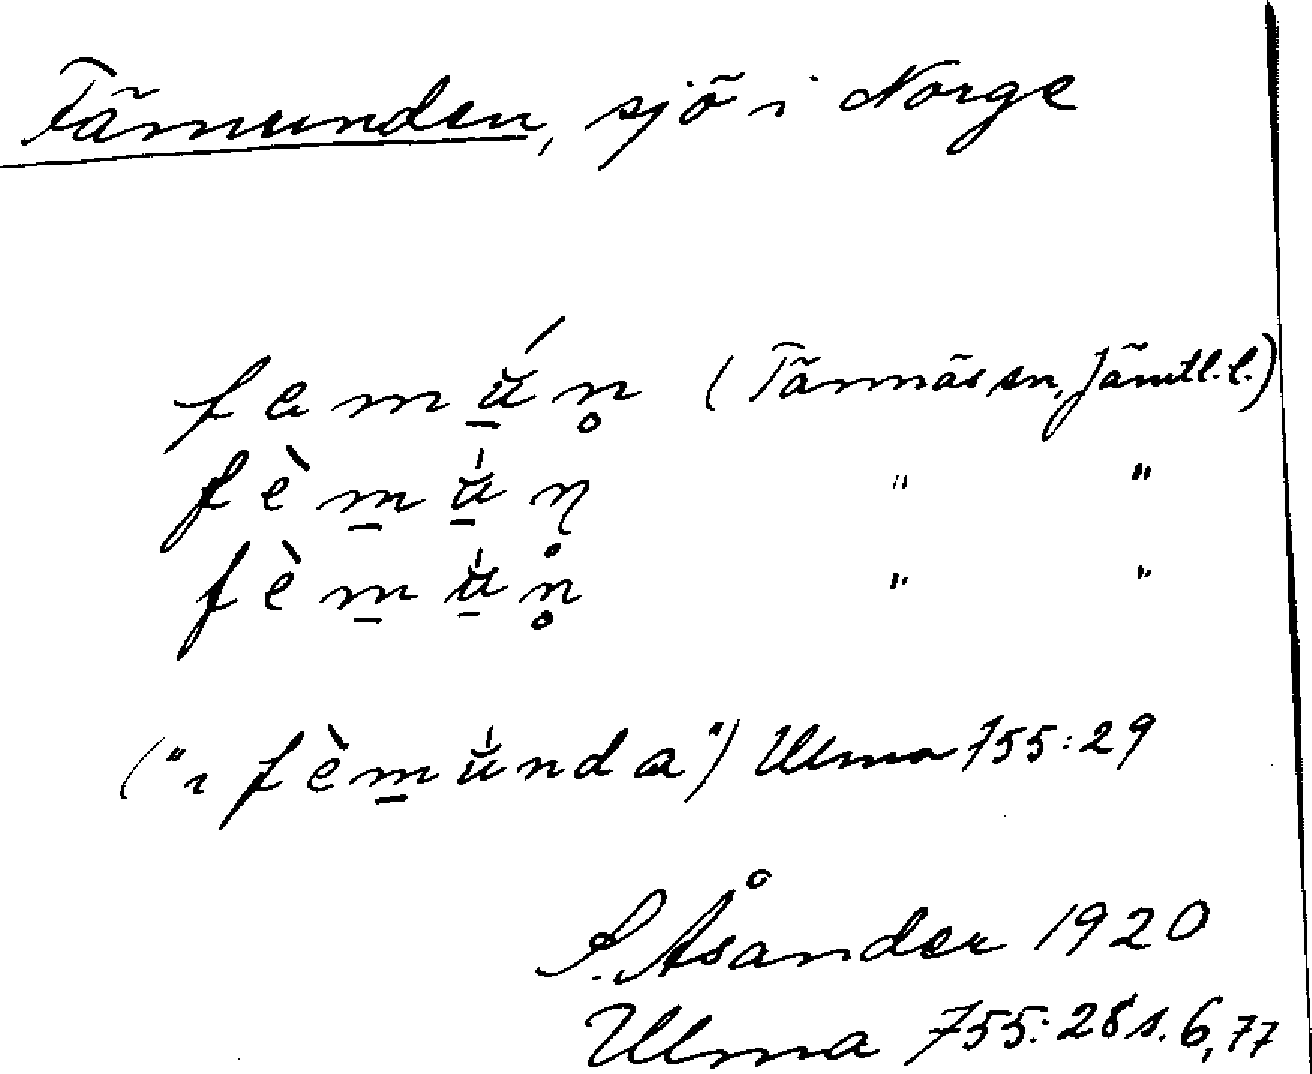 Fämunden, sjö i Norge
femŭ́n̥ (Tännäs sn, Jämtl. l.)
fèmŭ̍ṇ " "
fèmŭ̍n̥ " "
("ı fèmŭ̍nda") Ulma 755:29
S. Åsander 1920
Ulma 755:28 s. 6, 77